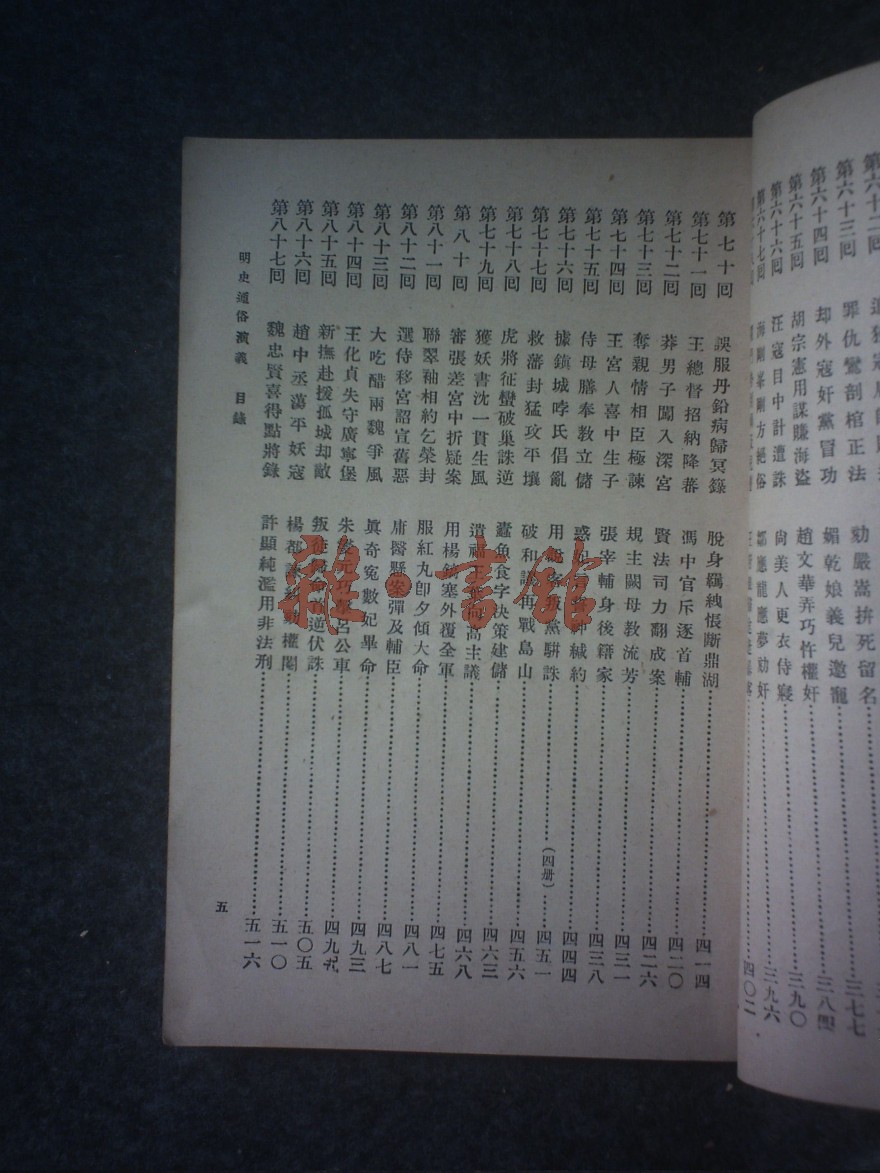 第六十二回
第六十三回 罪仇鸞剖棺正法 劾嚴嵩拚死留名 三七七
第六十四回 却外寇奸黨冒功 媚乾娘義兒邀寵 三八四
第六十五回 胡宗憲用謀賺海盜 趙文華弄巧忤權奸 三九〇
第六十六回 汪寇目中計遭誅 尙美人更衣侍寢 三九六
第六十七回 海剛峯剛方絕俗 鄒應龍應夢劾奸 四〇二
第七十回 誤服丹鉛病歸冥籙 脫身羈絏悵斷鼎湖 四一四
第七十一回 王總督招納降蕃 馮中官斥逐首輔 四二〇
第七十二回 莽男子闖入深宮 賢法司力翻成案 四二六
第七十三回 奪親情相臣極諫 規主闕母教流芳 四三一
第七十四回 王宮人喜中生子 張宰輔身後籍家 四三八
第七十五回 侍母膳奉教立儲 惑妃言誓神緘約 四四四
第七十六回 據鎮城哱氏倡亂 用說客叛黨駢誅 (四册) 四五一
第七十七回 救藩封猛攻平壤 破和議再戰島山 四五六
第七十八回 虎將征蠻破巢誅逆 蠹魚食字決策建儲 四六三
第七十九回 獲妖書沈一貫生風 遺福王葉向高主議 四六八
第八十回 審張差宮中折疑案 用楊鎬塞外覆全軍 四七五
第八十一回 聯翠袖相約乞榮封 服紅丸卽夕傾大命 四八一
第八十二回 選侍移宮詔宣舊惡 庸醫縣案彈及輔臣 四八七
第八十三回 大吃醋兩魏爭風 眞奇寃數妃畢命 四九三
第八十四回 王化貞失守廣寧堡 朱燮元巧擊呂公車 四九九
第八十五回 新撫赴援孤城却敵 叛徒歸命首逆伏誅 五〇五
第八十六回 趙中丞蕩平妖寇 楊都諫糾劾權閹 五一〇
第八十七回 魏忠賢喜得點將錄 許顯純濫用非法刑 五一六
明史通俗演義 目錄
五
雜·書館